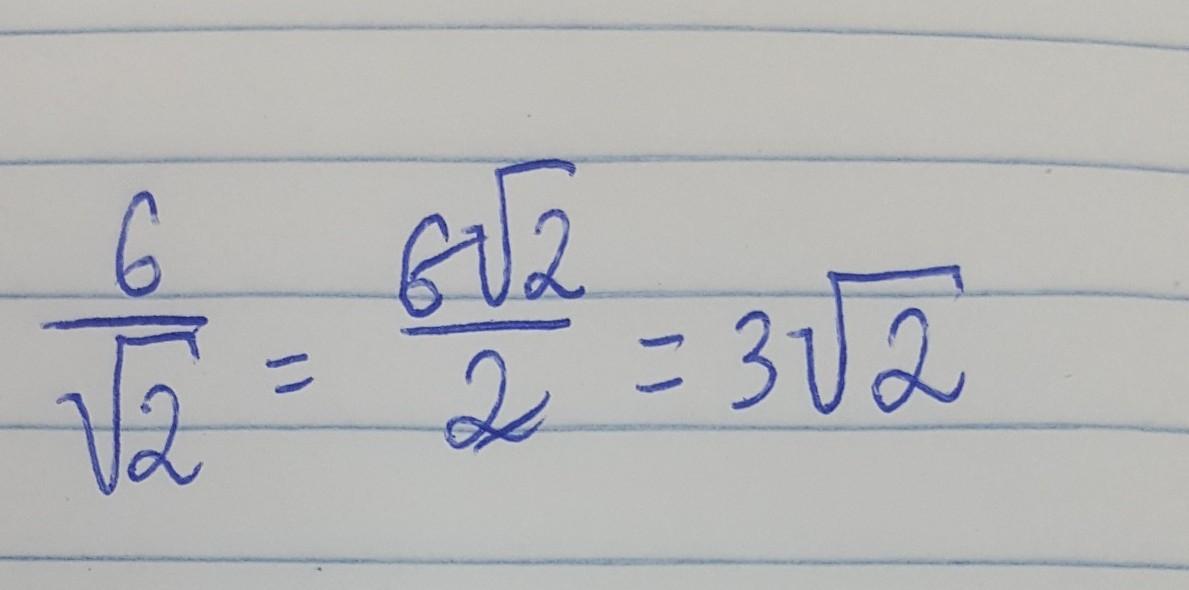 6/√2 = 6√2/2 = 3√2